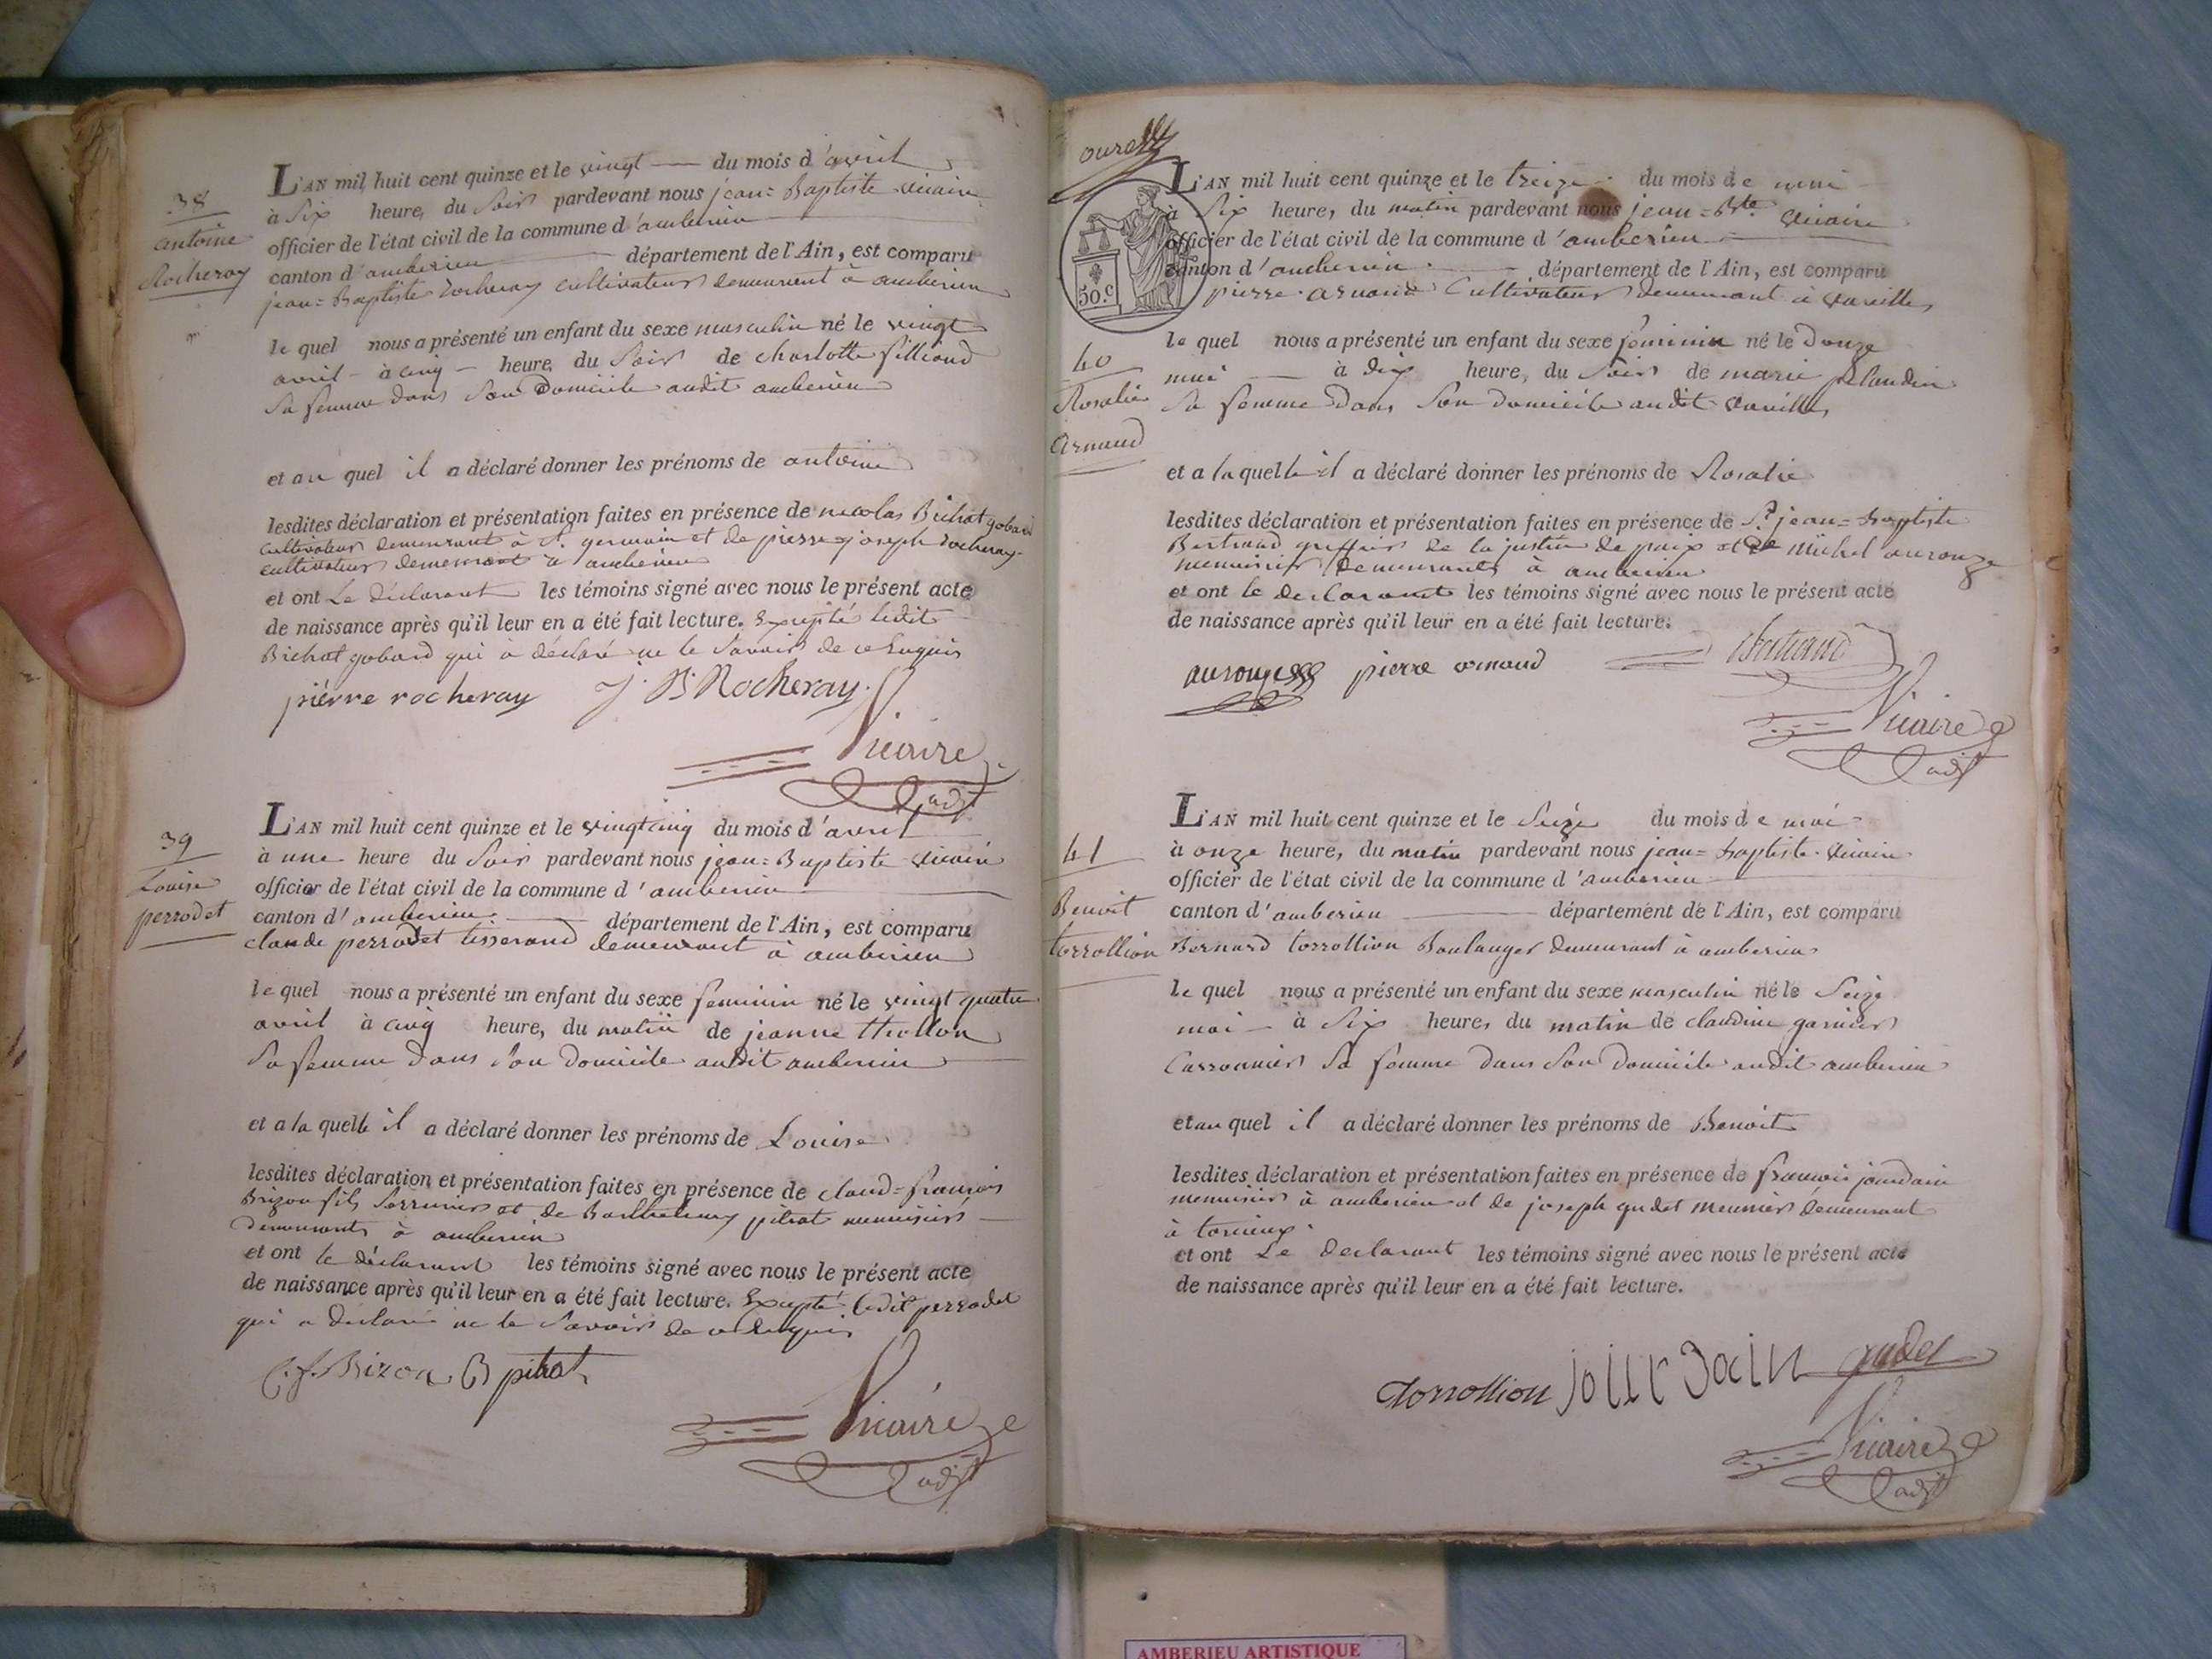 38
antoine
Rocheray
L'AN mil huit cent quinze et le vingt du mois d'avril
à Six heure, du Soir pardevant nous jean=Baptiste vicaire
officier de l'état civil de la commune d'amberieu
canton d'amberieu département de l'Ain, est comparu
jean=Baptiste rocheray cultivateur demeurant à amberieu
le quel nous a présenté un enfant du sexe masculin né le vingt
avril à cinq heure, du Soir de charlotte
Sa femme dans Son Domicile audit amberieu
et au quel il a déclaré donner les prénoms de antoine
lesdites déclaration et présentation faites en présence de nicolas Bichat gobard
cultivateur demeurant à St. germain et de pierre joseph rocheray
cultivateur demeurant à amberieu
et ont Le déclarant les témoins signé avec nous le présent acte
de naissance après qu'il leur en a été fait lecture. Excepté ledit
Bichat gobard qui a déclaré ne le Savoir de ce Enquis
pierre rocheray J. B. Rocheray
Vicaire
adjt
39
Louise
perrodet
L'AN mil huit cent quinze et le vingt cinq du mois d'avril
à une heure du Soir pardevant nous jean=Baptiste vicaire
officier de l'état civil de la commune d'amberieu
canton d'amberieu département de l'Ain, est comparu
claude perrodet tisserand demeurant à amberieu
le quel nous a présenté un enfant du sexe feminin né le vingt quatre
avril à cinq heure, du matin de jeanne thollon
Sa femme dans Son Domicile audit amberieu
et a la quelle il a déclaré donner les prénoms de Louise
lesdites déclaration et présentation faites en présence de claud=françois
Brizon fils Serrurier et de Barthelemy pitrat menuisier
demeurants à amberieu
et ont le déclarant les témoins signé avec nous le présent acte
de naissance après qu'il leur en a été fait lecture. Excepté ledit perrodet
qui a déclaré ne le Savoir de ce Enquis
C. f. Brizon B pitrat
Vicaire
adjt
50.c
40
Rosalie
Arnaud
L'AN mil huit cent quinze et le treize du mois de mai
à Six heure, du matin pardevant nous jean=Bte vicaire
officier de l'état civil de la commune d'amberieu
canton d'amberieu département de l'Ain, est comparu
pierre arnaud Cultivateur demeurant à vareilles
le quel nous a présenté un enfant du sexe féminin né le Douze
mai à dix heure, du Soir de marie
Sa femme dans Son domicile audit vareilles
et a la quelle il a déclaré donner les prénoms de Rosalie
lesdites déclaration et présentation faites en présence de Sr jean=baptiste
Bertrand greffier de la justice de paix et de Michel aurouze
menuisier demeurants à amberieu
et ont le declarant les témoins signé avec nous le présent acte
de naissance après qu'il leur en a été fait lecture.
aurouze pierre arnaud Bertrand
Vicaire
adjt
41
Benoit
torrollion
L'AN mil huit cent quinze et le Seize du mois de mai
à onze heure, du matin pardevant nous jean=baptiste vicaire
officier de l'état civil de la commune d'amberieu
canton d'amberieu département de l'Ain, est comparu
Bernard torrollion Boulanger demeurant à amberieu
le quel nous a présenté un enfant du sexe masculin né le Seize
mai à Six heures du matin de claudine garnier
Sa femme dans Son Domicile audit amberieu
et au quel il a déclaré donner les prénoms de Benoit
lesdites déclaration et présentation faites en présence de francois jourdain
menuisier à amberieu et de joseph gudet meunier demeurant
à torcieux
et ont Le declarant les témoins signé avec nous le présent acte
de naissance après qu'il leur en a été fait lecture.
torrollion jourdain gudet
Vicaire
adjt
AMBERIEU ARTISTIQUE